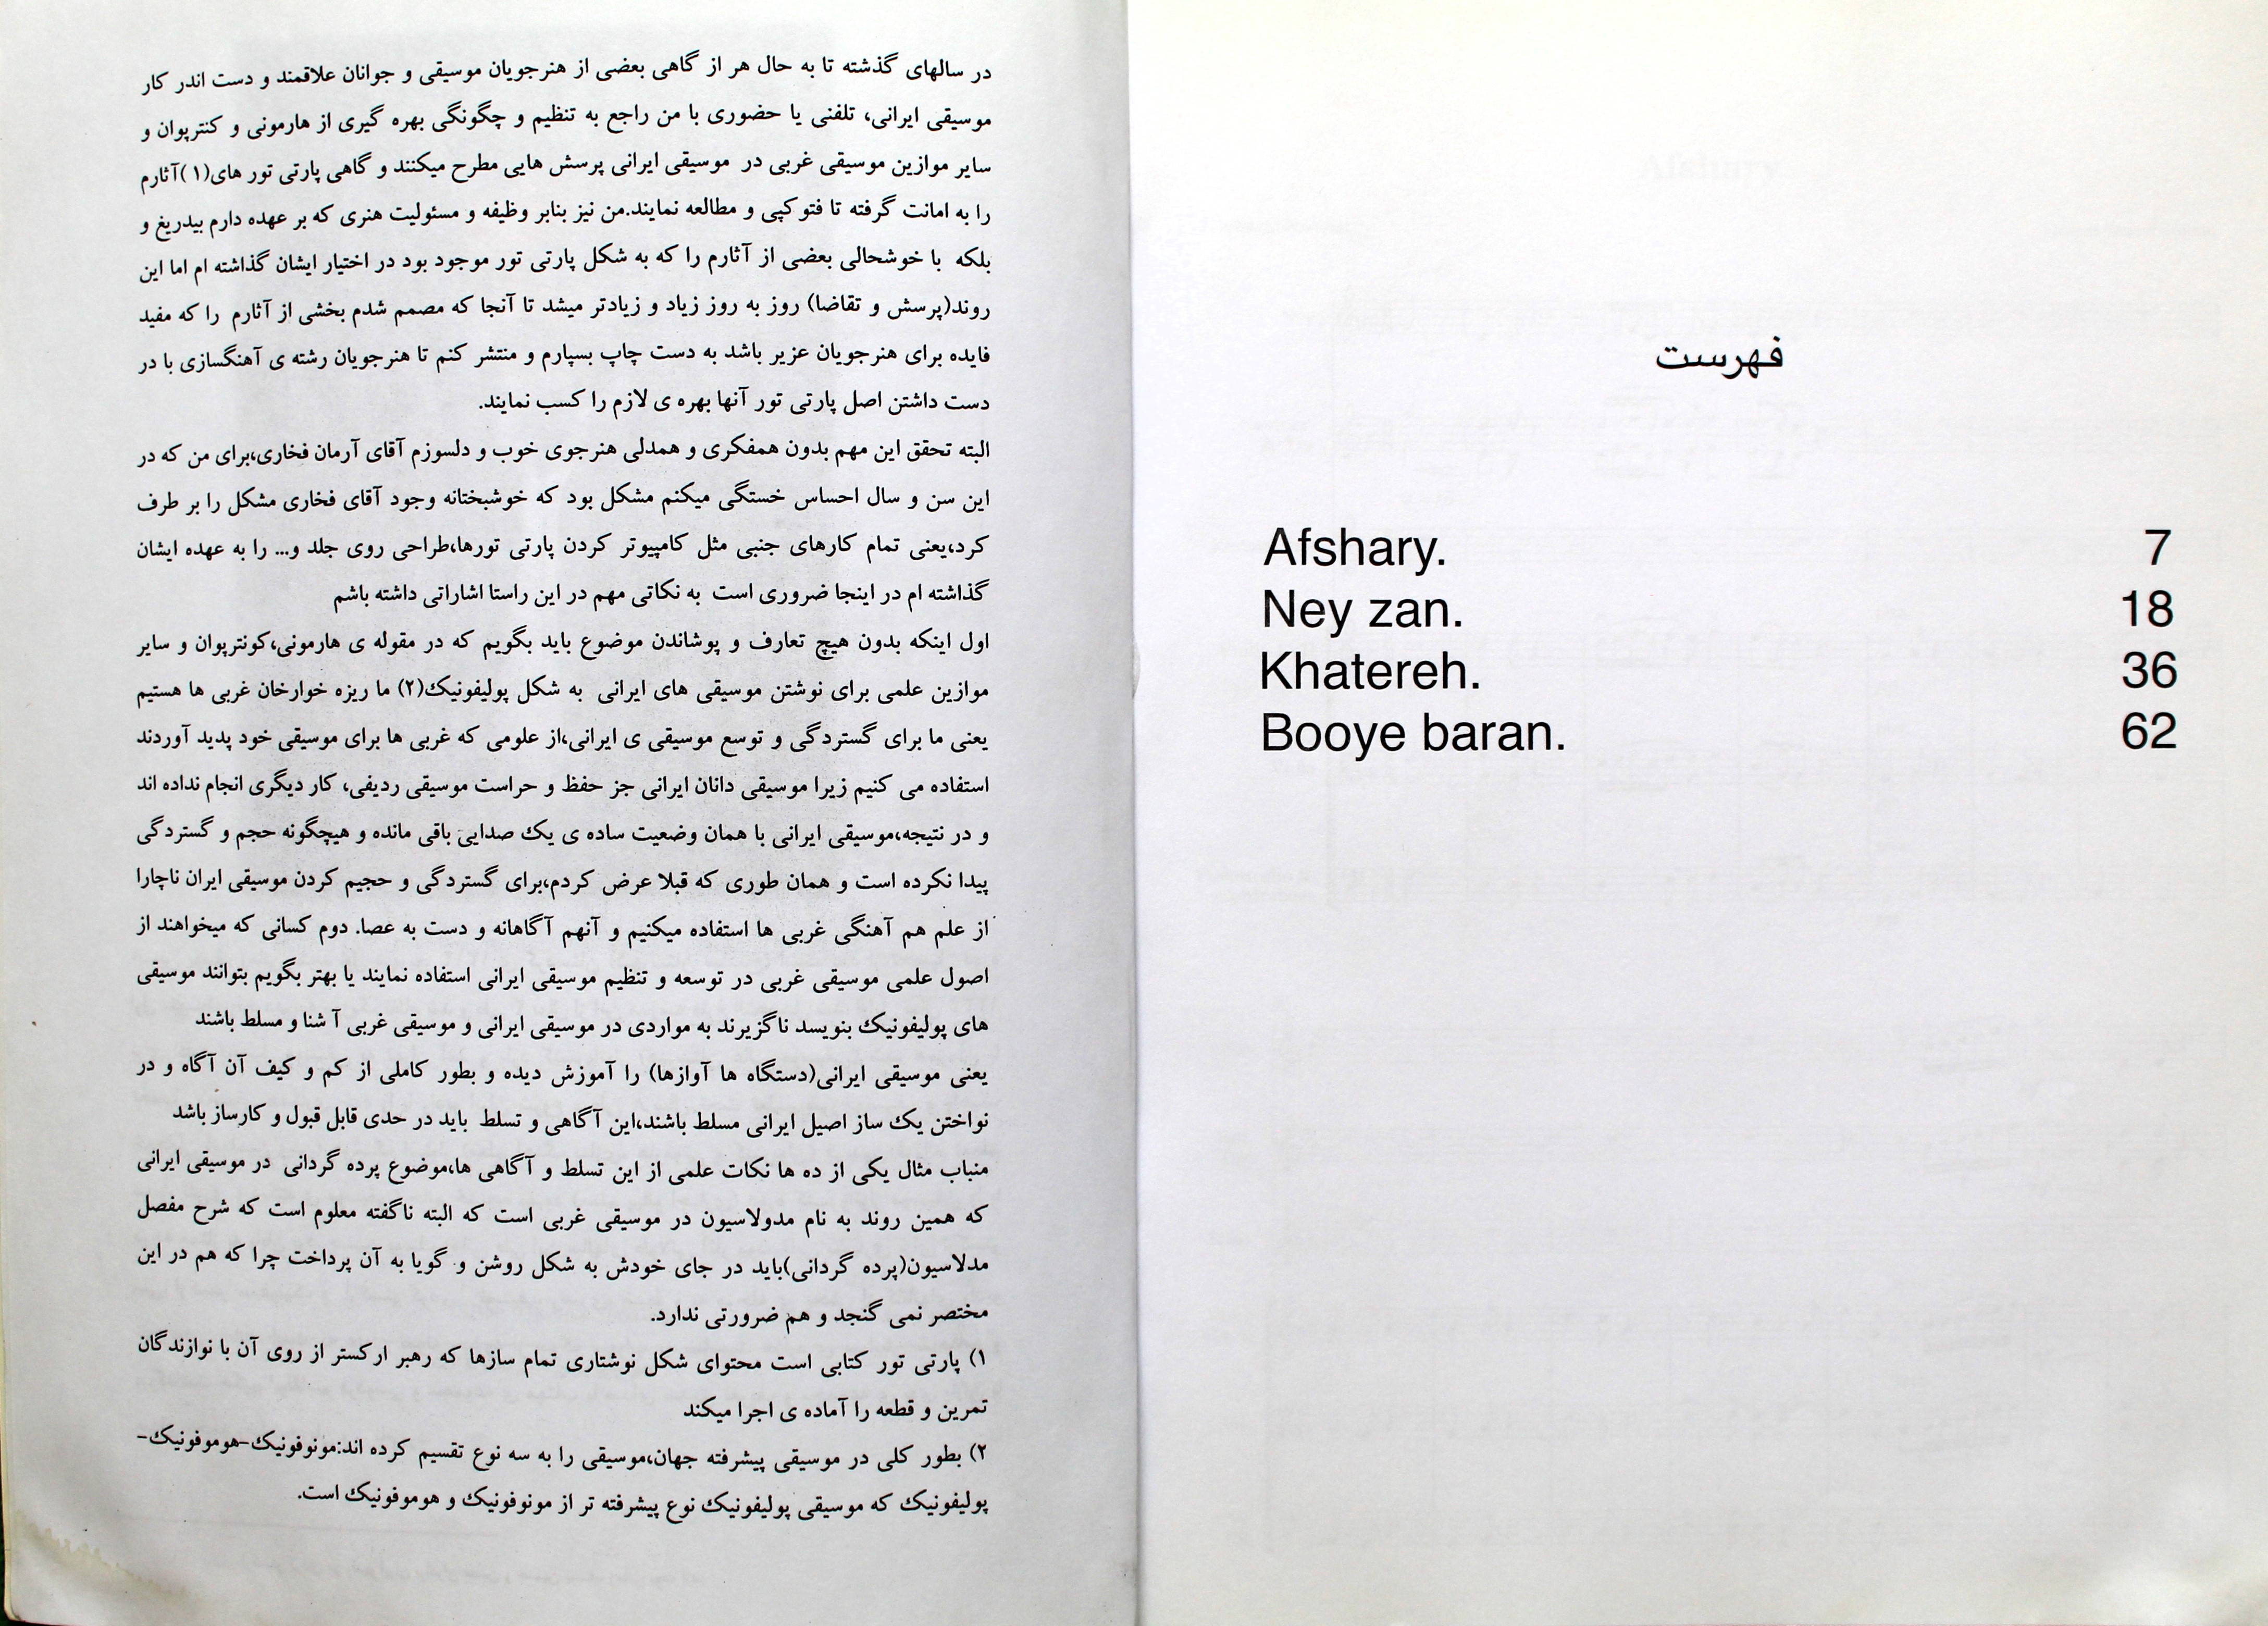 در سالهای گذشته تا به حال هر از گاهی بعضی از هنرجویان موسیقی و جوانان علاقمند و دست اندر کار
موسیقی ایرانی، تلفنی یا حضوری با من راجع به تنظیم و چگونگی بهره گیری از هارمونی و کنترپوان و
سایر موازین موسیقی غربی در موسیقی ایرانی پرسش هایی مطرح میکنند و گاهی پارتی تور های(۱)آثارم
را به امانت گرفته تا فتوکپی و مطالعه نمایند.من نیز بنابر وظیفه و مسئولیت هنری که بر عهده دارم بیدریغ و
بلکه با خوشحالی بعضی از آثارم را که به شکل پارتی تور موجود بود در اختیار ایشان گذاشته ام اما این
روند(پرسش و تقاضا) روز به روز زیاد و زیادتر میشد تا آنجا که مصمم شدم بخشی از آثارم را که مفید
فایده برای هنرجویان عزیر باشد به دست چاپ بسپارم و منتشر کنم تا هنرجویان رشته ی آهنگسازی با در
دست داشتن اصل پارتی تور آنها بهره ی لازم را کسب نمایند.
البته تحقق این مهم بدون همفکری و همدلی هنرجوی خوب و دلسوزم آقای آرمان فخاری،برای من که در
این سن و سال احساس خستگی میکنم مشکل بود که خوشبختانه وجود آقای فخاری مشکل را بر طرف
کرد،یعنی تمام کارهای جنبی مثل کامپیوتر کردن پارتی تورها،طراحی روی جلد و... را به عهده ایشان
گذاشته ام در اینجا ضروری است به نکاتی مهم در این راستا اشاراتی داشته باشم
اول اینکه بدون هیچ تعارف و پوشاندن موضوع باید بگویم که در مقوله ی هارمونی،کونترپوان و سایر
موازین علمی برای نوشتن موسیقی های ایرانی به شکل پولیفونیک(۲) ما ریزه خوارخان غربی ها هستیم
یعنی ما برای گستردگی و توسع موسیقی ی ایرانی،از علومی که غربی ها برای موسیقی خود پدید آوردند
استفاده می کنیم زیرا موسیقی دانان ایرانی جز حفظ و حراست موسیقی ردیفی، کار دیگری انجام نداده اند
و در نتیجه،موسیقی ایرانی با همان وضعیت ساده ی یک صدایی باقی مانده و هیچگونه حجم و گستردگی
پیدا نکرده است و همان طوری که قبلا عرض کردم،برای گستردگی و حجیم کردن موسیقی ایران ناچارا
از علم هم آهنگی غربی ها استفاده میکنیم و آنهم آگاهانه و دست به عصا. دوم کسانی که میخواهند از
اصول علمی موسیقی غربی در توسعه و تنظیم موسیقی ایرانی استفاده نمایند یا بهتر بگویم بتوانند موسیقی
های پولیفونیک بنویسد ناگزیرند به مواردی در موسیقی ایرانی و موسیقی غربی آ شنا و مسلط باشند
یعنی موسیقی ایرانی(دستگاه ها آوازها) را آموزش دیده و بطور کاملی از کم و کیف آن آگاه و در
نواختن یک ساز اصیل ایرانی مسلط باشند،این آگاهی و تسلط باید در حدی قابل قبول و کارساز باشد
منباب مثال یکی از ده ها نکات علمی از این تسلط و آگاهی ها،موضوع پرده گردانی در موسیقی ایرانی
که همین روند به نام مدولاسیون در موسیقی غربی است که البته ناگفته معلوم است که شرح مفصل
مدلاسیون(پرده گردانی)باید در جای خودش به شکل روشن و گویا به آن پرداخت چرا که هم در این
مختصر نمی گنجد و هم ضرورتی ندارد.
۱) پارتی تور کتابی است محتوای شکل نوشتاری تمام سازها که رهبر ارکستر از روی آن با نوازندگان
تمرین و قطعه را آماده ی اجرا میکند
۲) بطور کلی در موسیقی پیشرفته جهان،موسیقی را به سه نوع تقسیم کرده اند:مونوفونیک-هوموفونیک-
پولیفونیک که موسیقی پولیفونیک نوع پیشرفته تر از مونوفونیک و هوموفونیک است.
فهرست
Afshary. 7
Ney zan. 18
Khatereh. 36
Booye baran. 62